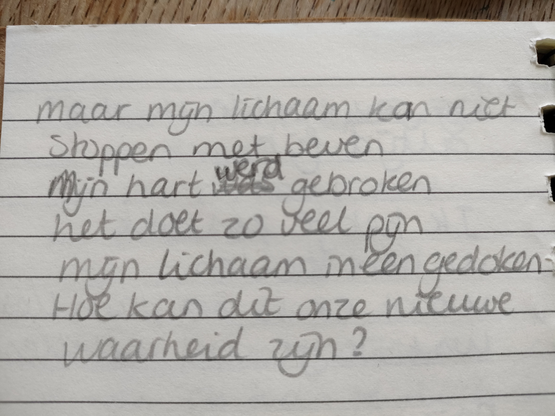 maar mijn lichaam kan niet
stoppen met beven
Mijn hart werd gebroken
het doet zo veel pijn
mijn lichaam ineengedoken
Hoe kan dit onze nieuwe
waarheid zijn?